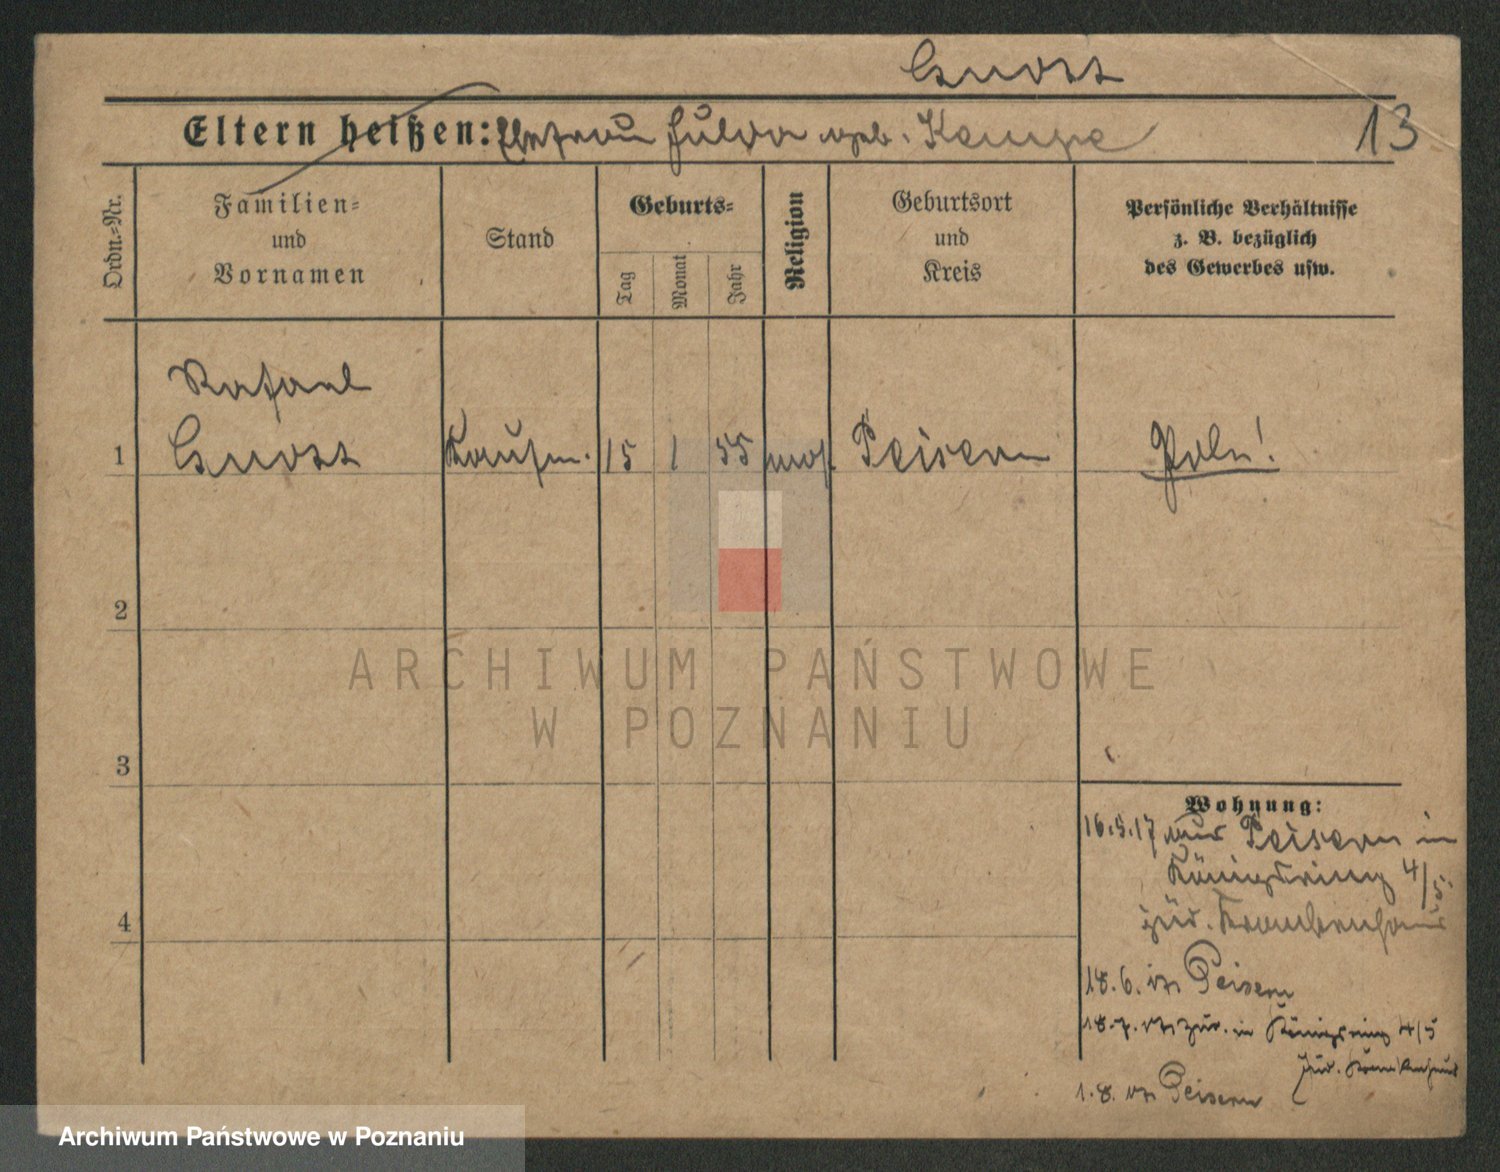 Gnost
Eltern heißen: Ehefrau Hulda geb. Kempe
13
Ordn.-Nr.
Familien-
und
Vornamen
Stand
Geburts-
Tag
Monat
Jahr
Religion
Geburtsort
und
Kreis
Persönliche Verhältnisse
z. B. bezüglich
des Gewerbes usw.
Rafael
1 Gnost Kaufm. 15 1 55 mos. Peisern Pole!
2
3
4
ARCHIWUM PAŃSTWOWE
W POZNANIU
Wohnung:
16.5.17 aus Peisern in
Königsring 4/5
jüd. Krankenhaus
18.6. n. Peisern
18.7. zur. in Königsring 4/5
jüd. Krankenhaus
1.8. n. Peisern
Archiwum Państwowe w Poznaniu